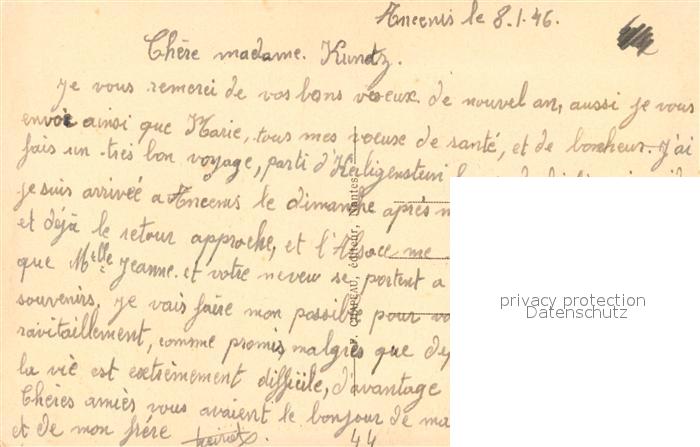 Ancenis le 8.1.46.
Chère madame. Kuntz.
Je vous remerci de vos bons voeux de nouvel an, aussi je vous
envoie ainsi que Marie, tous mes voeuse de santé, et de bonheur. J'ai
fais un très bon voyage, parti d'Heiligenstein
je suis arrivée a Ancenis le dimanche après
et déja le retour approche, et l'Alsace me
que Melle Jeanne et votre neveu se portent a
souvenirs. Je vais faire mon possible pour
ravitaillement, comme promis malgrés que
la vie est extrèmement difficile, d'avantage
Chères amiès vous avaient le bonjour de
et de mon frère
F. CHAPEAU, éditeur, Nantes
44
privacy protection
Datenschutz